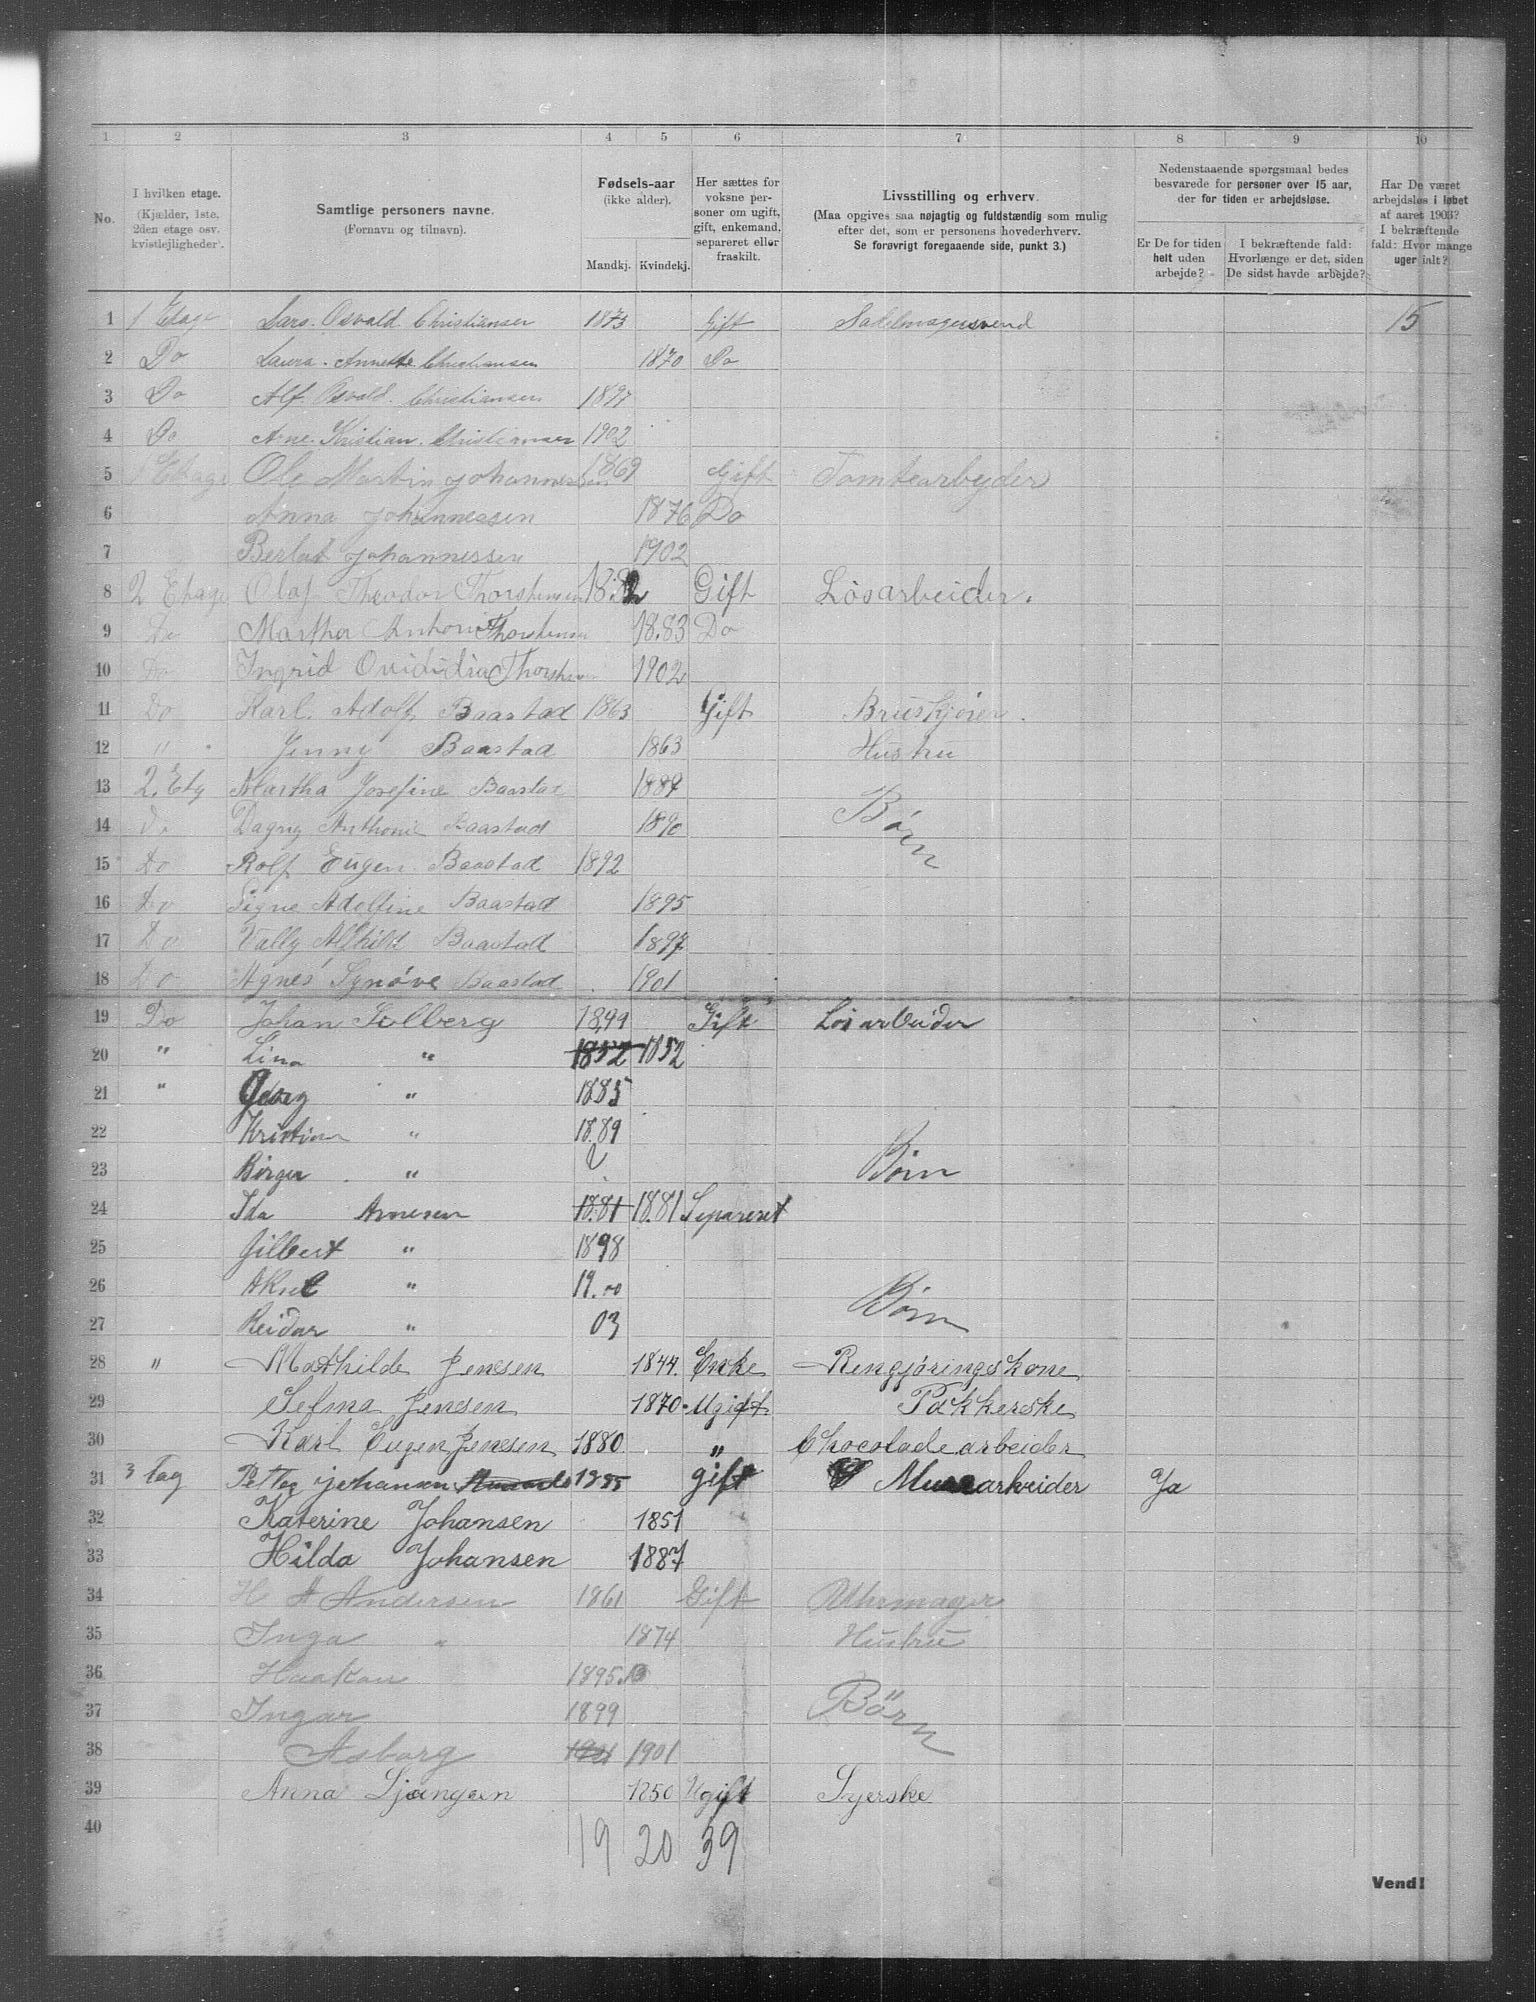 1 2 3 4 5 6 7 8 9 10
No.
I hvilken etage.
(Kjælder, 1ste, 2den etage osv. kvistlejligheder).
Samtlige personers navne.
(Fornavn og tilnavn).
Fødsels-aar
(ikke alder).
Mandkj. Kvindekj.
Her sættes for voksne personer om ugift, gift, enkemand, separeret eller fraskilt.
Livsstilling og erhverv.
(Maa opgives saa nøjagtig og fuldstændig som mulig efter det, som er personens hovederhverv.
Se forøvrigt foregaaende side, punkt 3.)
Nedenstaaende spørgsmaal bedes besvarede for personer over 15 aar, der for tiden er arbejdsløse.
Er De for tiden helt uden arbejde?
I bekræftende fald: Hvorlænge er det, siden De sidst havde arbejde?
Har De været arbejdsløs i løbet af aaret 1903? I bekræftende fald: Hvor mange uger ialt?
1 1 Etage Lars. Osvald Christiansen 1873 Gift Salelmagersvend 15
2 Do Laura. Annette Christiansen 1870 Do
3 Do Alf. Osvald. Christiansen 1897
4 Do Arne. Kristian. Christiansen 1902
5 1 Etage Ole Martin Johannessen 1869 Gift Tomtearbejder
6 Anna Johannessen 1876 Do
7 Johannessen 1902
8 2 Etage Olaf Theodor Thorstensen 1882 Gift Løsarbeider.
9 Do Martha Antoni Thorstensen 18.83 Do
10 Do Ingrid Thorstensen 1902
11 Do Karl. Adolf Baastad 1863 Gift Bruskjører.
12 " Jenny Baastad 1863 Hustru
13 2. Etg Martha Josefine Baastad 1887
14 Do Dagny Anthonie Baastad 1890 Børn
15 Do Rolf Eugen. Baastad 1892
16 Do Signe Adolfine Baastad 1895
17 Do Vally Alfhild Baastad 1897
18 Do Agnes Synøve Baastad 1901
19 Do Johan Solberg 1849 Gift Løsarbeider
20 " Lina " 1852 1852
21 " Georg " 1885
22 Kristian " 18.89
23 Birger " Børn
24 Ida Arnesen 18.81 18.81 Separeret
25 Gilbert " 1898
26 " 19.00 Børn
27 Reidar " 03
28 " Mathilde Jensen 1844. Enke Rengjøringskone
29 Selma Jensen 1870 Ugift Pakkerske
30 Karl Eugen Jensen 1880 " Chocoladearbeider
31 3 Etag Petter Johansen 1855 gift Murarbeider Ja
32 Katerine Johansen 1851
33 Hilda Johansen 1887
34 H A Andersen 1861 Gift Uhrmager
35 Inga " 1874 Hustru
36 Haakon 1895
37 Ingar 1899 Børn
38 Asborg 1901 1901
39 Anna 1850 Ugift Syerske
40
19 20 39
Vend!